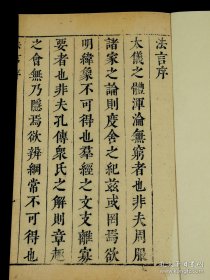 法言序
太儀之體渾淪無窮者也非夫周服
諸家之論則度舍之紀茲或罔焉欲
明緯象不可得也羣經之文支離寡
要者也非夫孔傳衆氏之解則章趣
之會無乃隱焉欲辨綱常不可得也